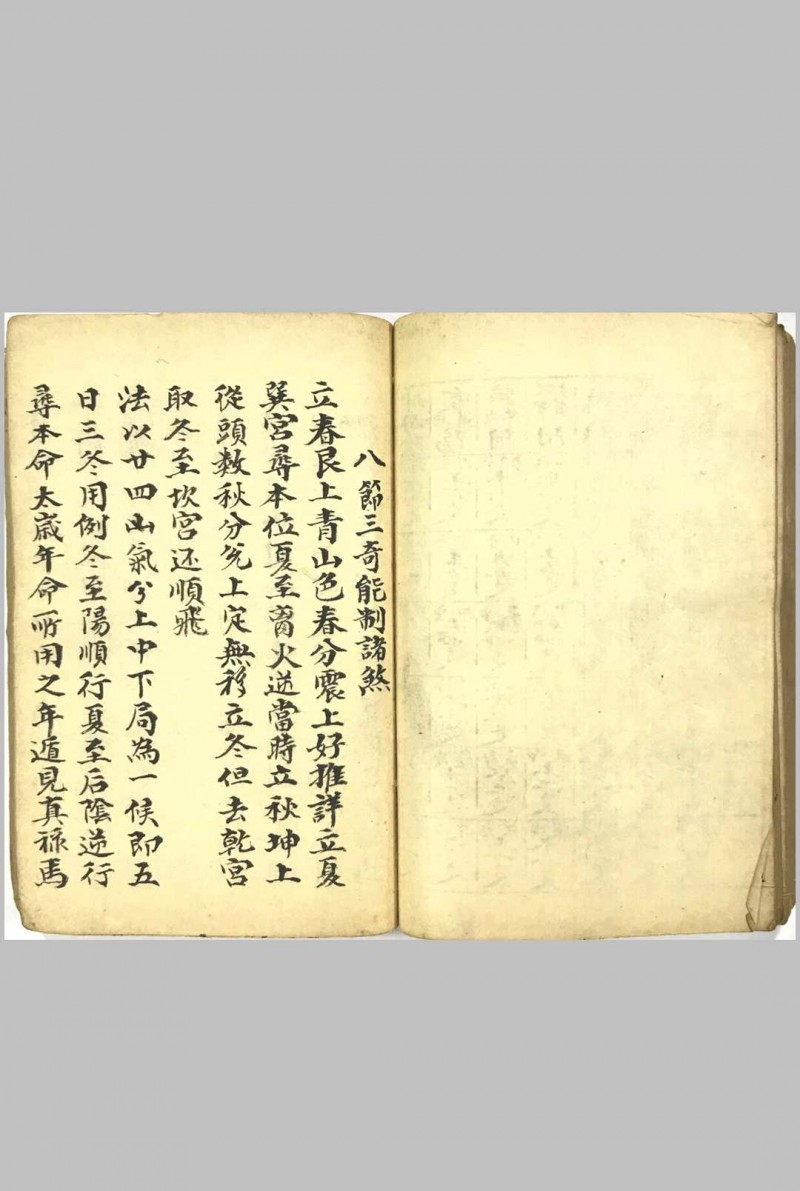 八節三奇能制諸煞
立春艮上青山色春分震上好推詳立夏
巽宮尋本位夏至离火逆當時立秋坤上
從頭数秋分兊上定無移立冬但去乾宮
取冬至坎宮还順飛
法以廿四山氣分上中下局為一候即五
日三冬用例冬至陽順行夏至后陰逆行
尋本命太歲年命所用之年遁見真祿馬